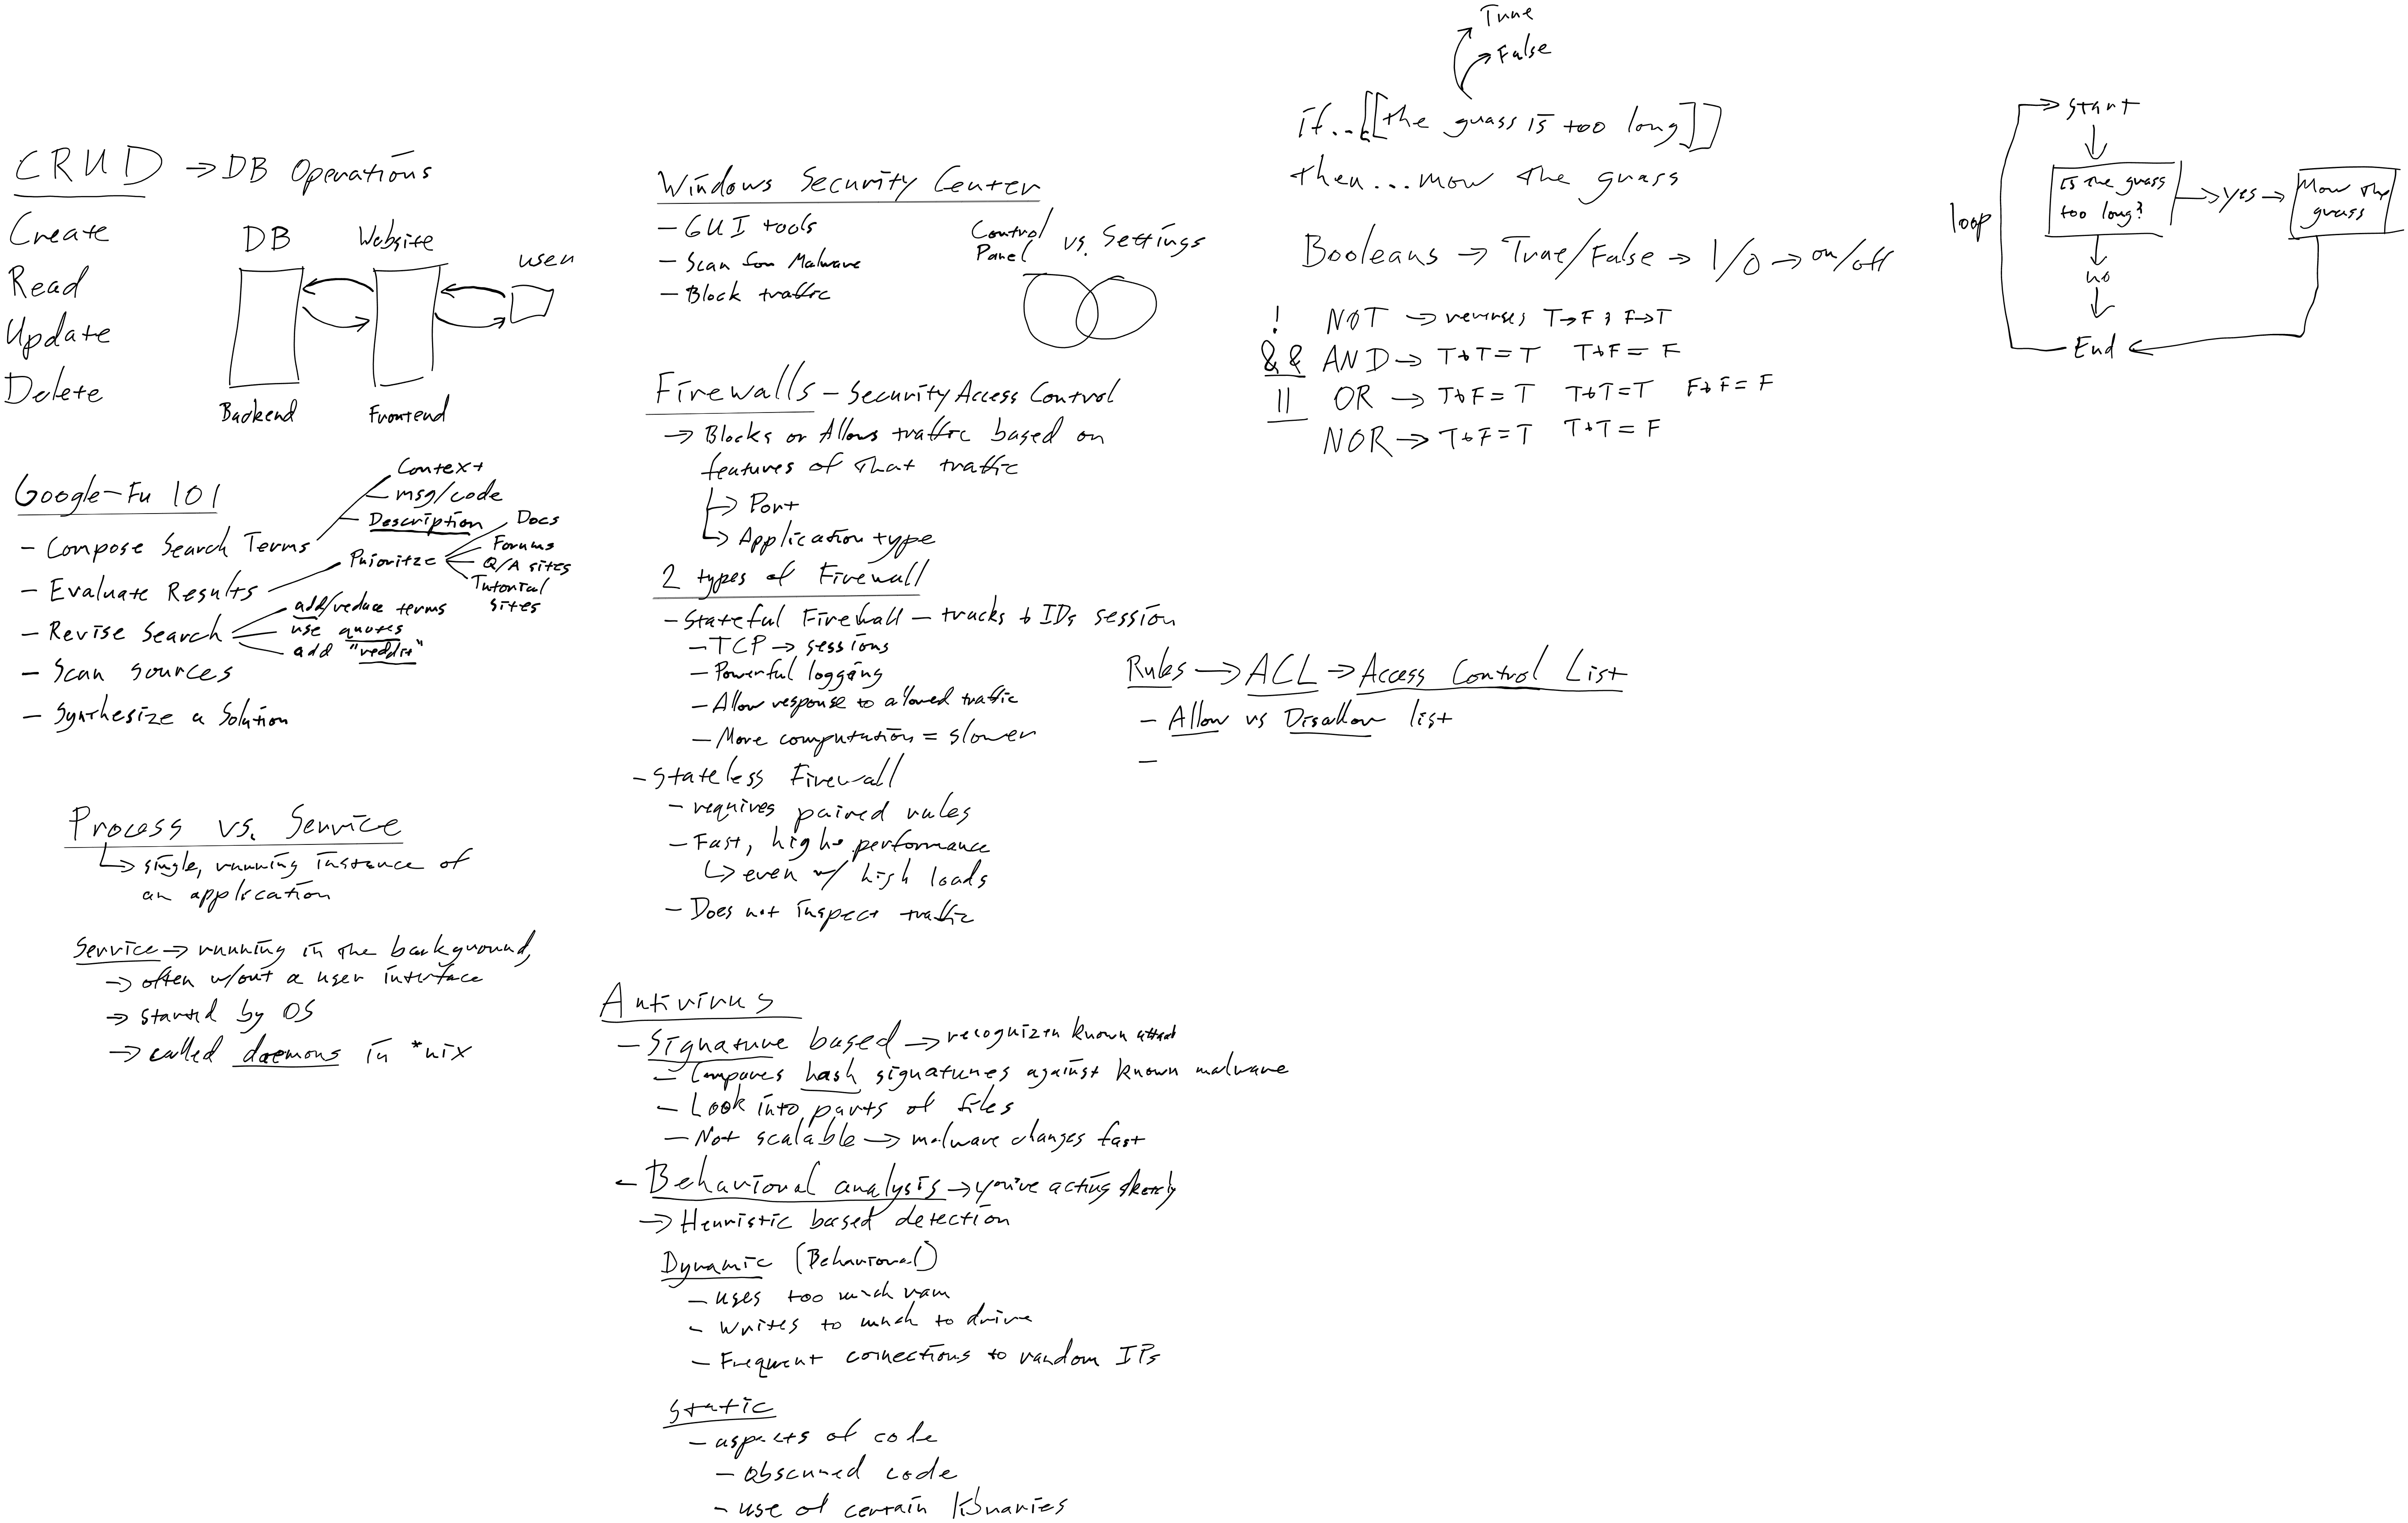 CRUD → DB Operations
Create
Read
Update
Delete
DB
Website
user
Backend
Frontend
Google-Fu 101
- Compose Search Terms
Context
msg/code
Description
- Evaluate Results
Prioritze
Docs
Forums
Q/A sites
Tutorial
sites
- Revise Search
add/reduce terms
use quotes
add "reddit"
- Scan sources
- Synthesize a Solution
Process vs. Service
↳ single, running instance of
an application
Service → running in the background,
→ often w/out a user interface
→ started by OS
→ called daemons in *nix
Windows Security Center
- GUI tools
- Scan for Malware
- Block traffic
Control
Panel vs. Settings
Firewalls - Security Access Control
→ Blocks or Allows traffic based on
features of that traffic
↳ Port
↳ Application type
2 types of Firewall
- Stateful Firewall - tracks + IDs session
- TCP → sessions
- Powerful logging
- Allow response to allowed traffic
- More computation = slower
- Stateless Firewall
- requires paired rules
- Fast, high performance
↳ even w/ high loads
- Does not inspect traffic
Antivirus
- Signature based → recognizes known
- Compares hash signatures against known malware
- Look into parts of files
- Not scalable → malware changes fast
- Behavioral analysis → you're acting sketchy
→ Heuristic based detection
Dynamic (Behavioral)
- uses too much ram
- Writes to much to drive
- Frequent connections to random IPs
Static
- aspects of code
- obscured code
- use of certain libraries
True
False
if...[[the grass is too long]]
then...mow the grass
Booleans → True/False → 1/0 → on/off
! NOT → reverses T→F ; F→T
&& AND → T+T=T T+F=F
|| OR → T+F=T T+T=T F+F=F
NOR → T+F=T T+T=F
Rules → ACL → Access Control List
- Allow vs Disallow list
-
start
Is the grass
too long?
yes
Mow the
grass
loop
no
End